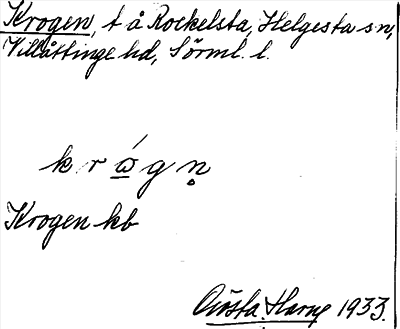 Krogen, t å Rockelsta, Helgesta sn,
Villåttinge hd, Sörml. l.
k r ώ g n̥
Krogen kb
Gösta Harne 1933.